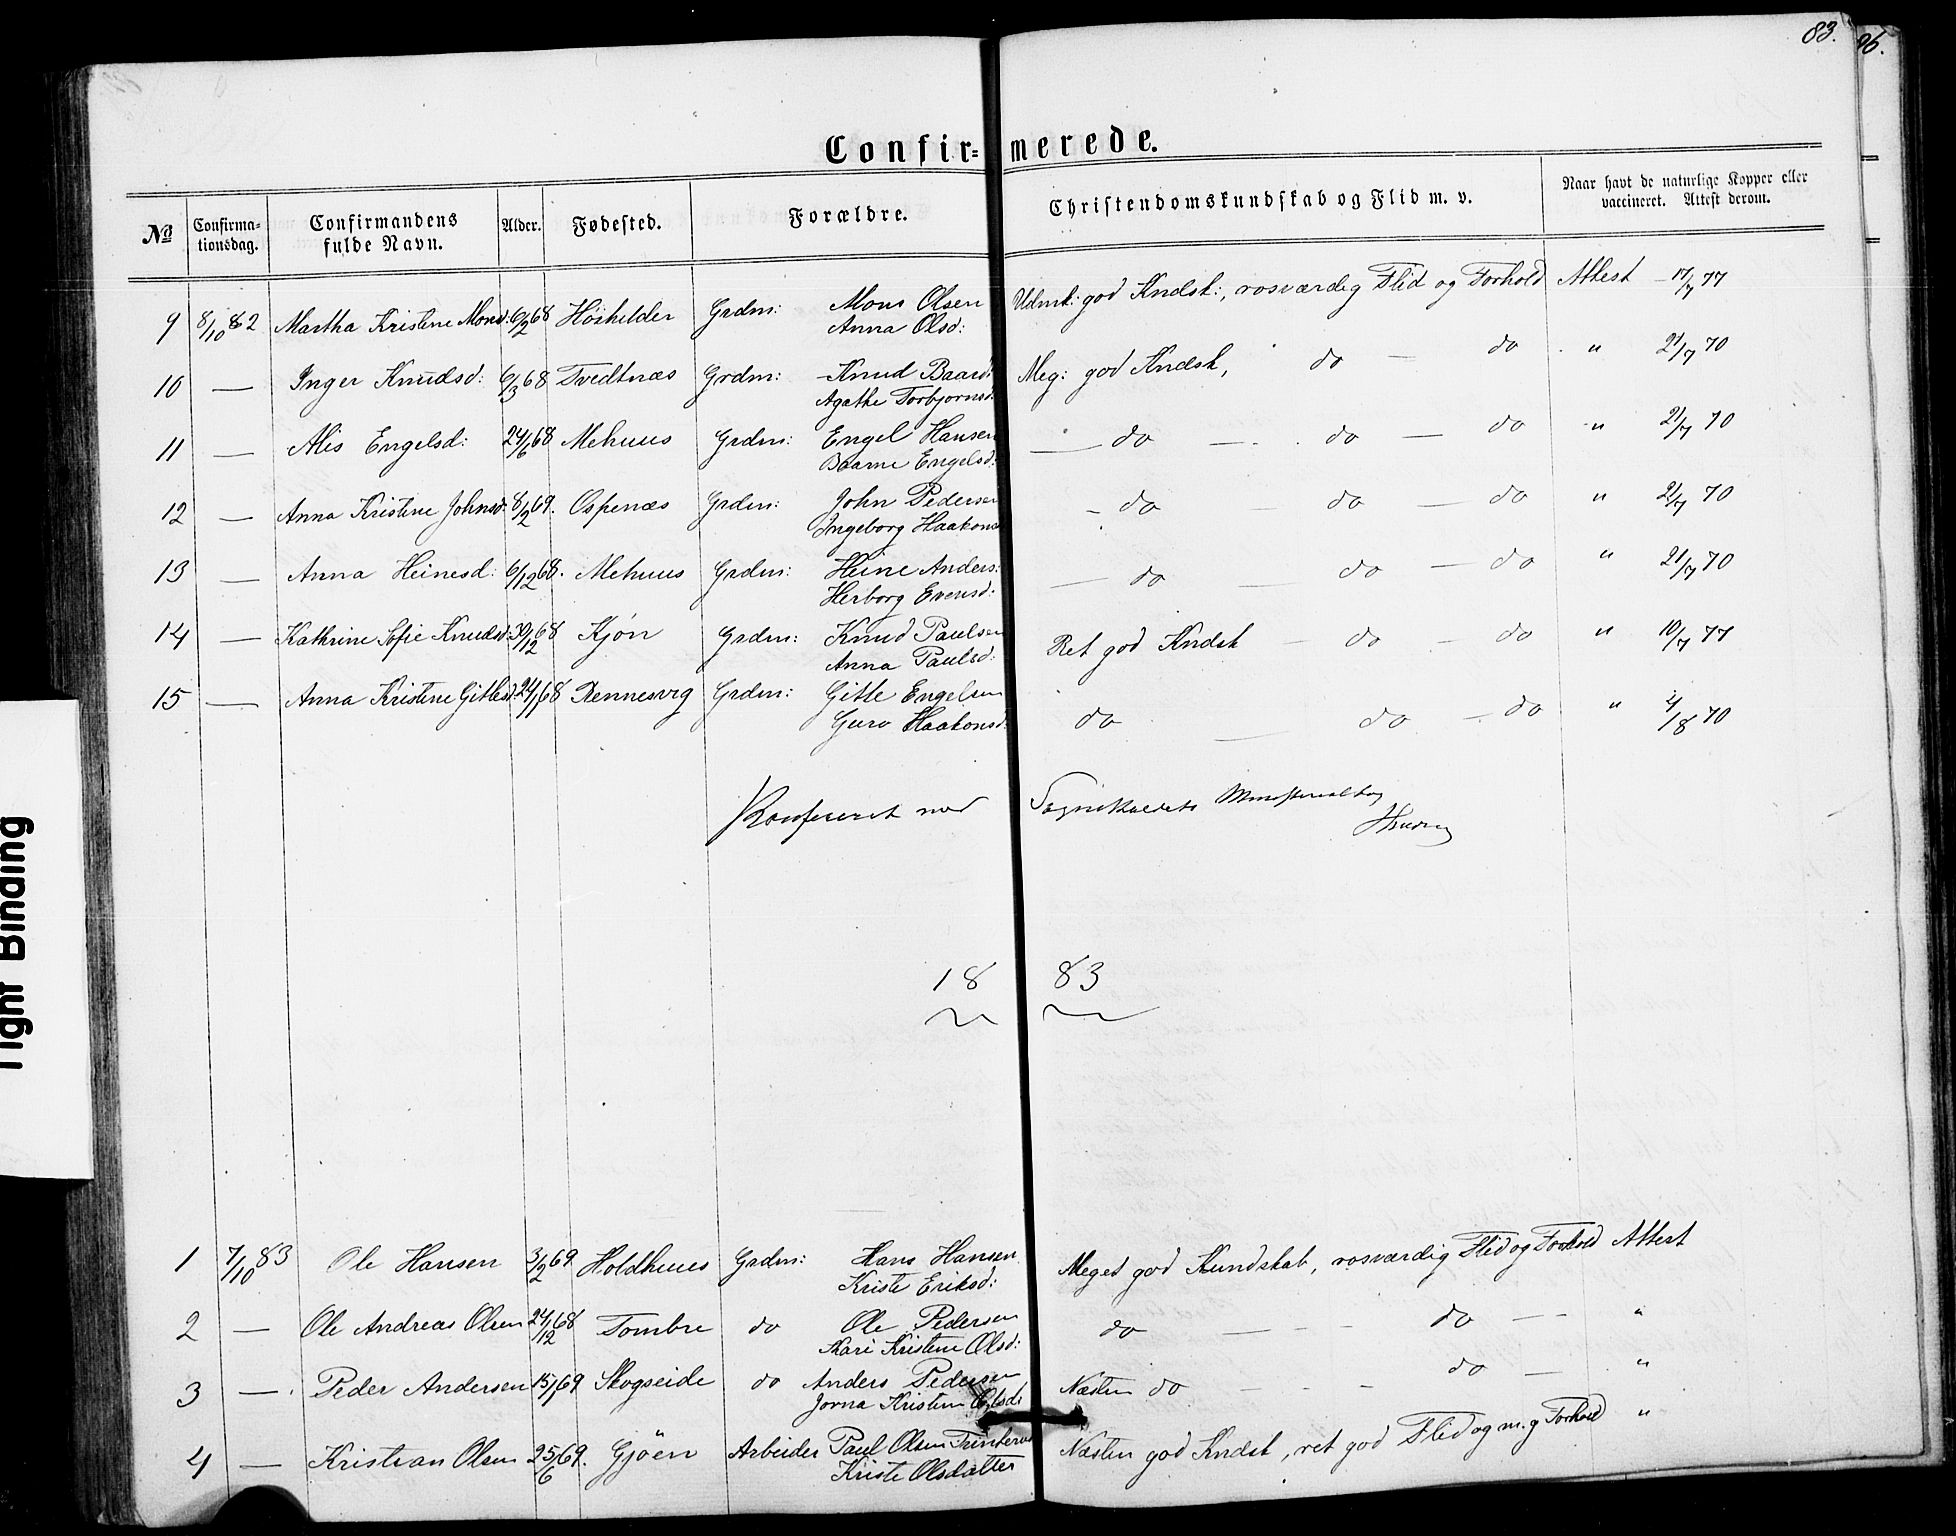 83.
96.
Confir=merede.
No
Confirma=tionsdag.
Confirmandens fulde Navn.
Alder.
Fødested.
Forældre.
Christendomskundskab og Flid m. v.
Naar havt de naturlige Kopper eller vaccineret. Attest derom.
9 8/10 82 Martha Kristine Monsd: 6/2 68 Høshilder Grdm: Mons Olsen Udmk: god Kndsk:, rosværdig Flid og Forhold Attest – 17/7 77
Anna Olsd:
10 — Inger Knudsd: 6/3 68 Tvedtnæs Grdm: Knud Baards Meg: god Kndsk, do — do " 21/7 70
Agathe Torbjørnsd:
11 — Alis Engelsd: 24/6 68 Mehuus Grdm: Engel Hansen — do — do — do " 21/7 70
Baarne Engelsd:
12 — Anna Kristine Johnsd: 8/2 69. Ospenæs Grdm: John Pedersen – do — do — do " 21/7 70
Ingeborg Haakons
13 — Anna Heinesd: 6/12 68. Mehuus Grdm: Heine Anders: — do — do — do " 21/7 70
Herborg Evensd:
14 — Kathrine Sofie Knudsd: 30/12 68 Kjøn Grdm: Knud Paulsen Ret god Kndsk — do — do " 10/7 77
Anna Paulsd:
15 — Anna Kristine Gitlesd: 24/1 68 Rennesvig Grdm: Gitle Engelsen do — do — do " 4/18 70
Guro Haakonsd:
Konfereret med Sognekaldets Ministerialbog
18 83
1 7/10 83 Ole Hansen 3/2 69 Holdhuus Grdm: Hans Hansen Meget god Kundskab, rosværdig Flid og Forhold Attest
Kristi Eriksd:
2 — Ole Andreas Olsen 24/12 68 Tombre do Ole Pedersen do — — — do — — "
Kari Kristine Olsd:
3 — Peder Andersen 15/1 69 Skogseide do Anders Pedersen Næsten do — — — do — "
Jorna Kristine Olsd:
4 — Kristian Olsen 25/6 69. Gjøen Arbeider Paul Olsen Næsten god Kndsk, ret god Flid og m. g Forhold "
Kristi Olsdatter
Tight Binding